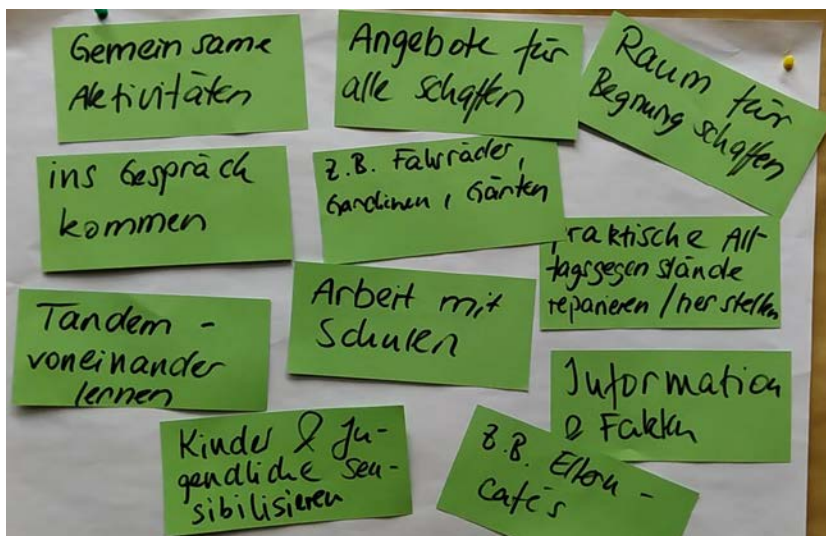 Gemeinsame
Aktivitäten
Angebote für
alle schaffen
Raum für
Begnung schaffen
ins Gespräch
kommen
z.B. Fahrräder,
Gardinen, Gärten
praktische All-
tagsgegenstände
reparieren / herstellen
Tandem -
voneinander
lernen
Arbeit mit
Schulen
Information
& Fakten
Kinder & Ju-
gendliche sen-
sibilisieren
z.B. Eltern -
cafés